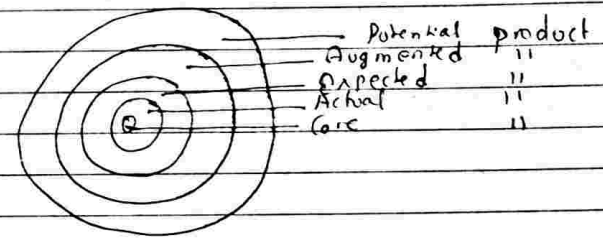 Potential product
Augmented "
Expected "
Actual "
Core "